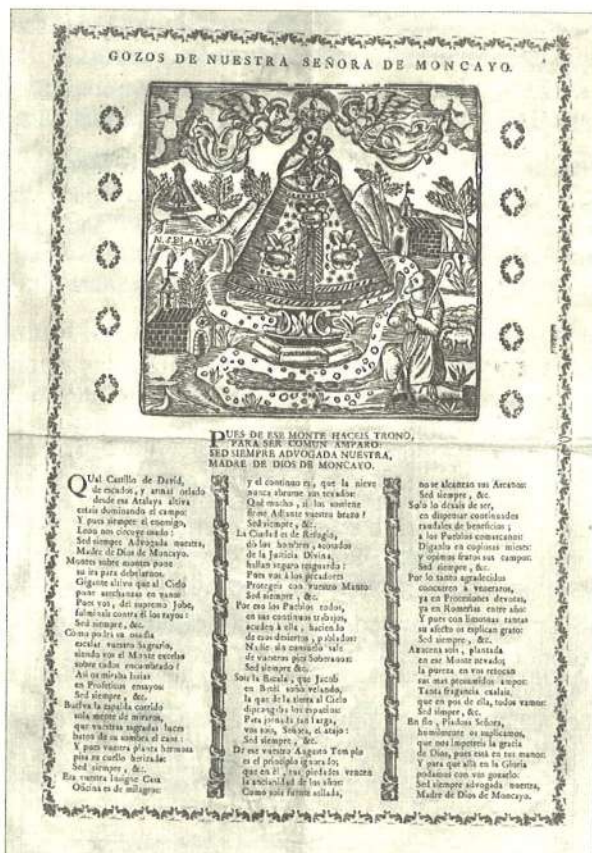 GOZOS DE NUESTRA SEÑORA DE MONCAYO.
PUES DE ESE MONTE HACEIS TRONO,
PARA SER COMUN AMPARO:
SED SIEMPRE ADVOGADA NUESTRA,
MADRE DE DIOS DE MONCAYO.
QUal Castillo de David,
de escudos, y armas orlado
desde esa Atalaya altiva
estais dominando el campo:
Y pues siempre el enemigo,
Leon nos circuye osado:
Sed siempre Advogada nuestra,
Madre de Dios de Moncayo.
Montes sobre montes pone
su ira para debelarnos.
Gigante altivo que al Cielo
pone asechanzas en vano:
Pues vos, del supremo Jobe,
fulminais contra él los rayos:
Sed siempre, &c.
Como podrá su osadia
escalar vuestro Sagrario,
siendo vos el Monte excelso
sobre todos encumbrado?
Asi os miraba Isaias
en Profeticos ensayos:
Sed siempre, &c.
Buelva la espalda corrido
solo mente de miraros,
que vuestras sagradas luces
huyen de su sombra el caos:
Y pues vuestra planta hermosa
pisa su cuello herizado:
Sed siempre, &c.
Es vuestra Insigne Casa
Oficina es de milagros:
y el continuo es, que la nieve
nunca abrume sus texados:
Qué mucho, si los sostiene
firme Adlante vuestro brazo?
Sed siempre, &c.
La Ciudad es de Refugio,
dó los hombres, acosados
de la Justicia Divina,
hallan seguro resguardo:
Pues vos á los pecadores
Protegeis con vuestro Manto:
Sed siempre, &c.
Por eso los Pueblos todos,
en sus continuos trabajos,
acuden á ella, haciendo
de esos desiertos, poblados:
Nadie sin consuelo sale
de vuestros pies Soberanos:
Sed siempre &c.
Sois la Escala, que Jacob
en Betél soñó velando,
la que de la tierra al Cielo
los espacios:
Para jornada tan larga,
vos sois, Señora, el atajo:
Sed siempre, &c.
De ese vuestro Augusto Templo
es el principio ignorado;
que en él, sus piedades vencen
la ancianidad de los años:
Como sois fuente sellada,
no se alcanzan sus Arcanos:
Sed siempre, &c.
Solo lo dexais de ser,
en dispensar continuados
raudales de beneficios;
a los Pueblos comarcanos:
Diganlo en copiosas mieses
y opimos frutos sus campos:
Sed siempre, &c.
Por lo tanto agradecidos
concurren á veneraros,
ya en Procesiones devotas,
ya en Romerias entre año:
Y pues con limosnas tantas
su afecto os explican grato:
Sed siempre, &c.
Azucena sois, plantada
en ese Monte nevado;
la pureza en vos retocan
sus mas presumidos ampos:
Tanta fragancia exalais,
que en pos de ella, todos vamos:
Sed siempre, &c.
En fin, Piadosa Señora,
humilmente os suplicamos,
que nos impetreis la gracia
de Dios, pues está en tus manos:
Y para que allá en la Gloria
podamos con vos gozarlo:
Sed siempre advogada nuestra,
Madre de Dios de Moncayo.